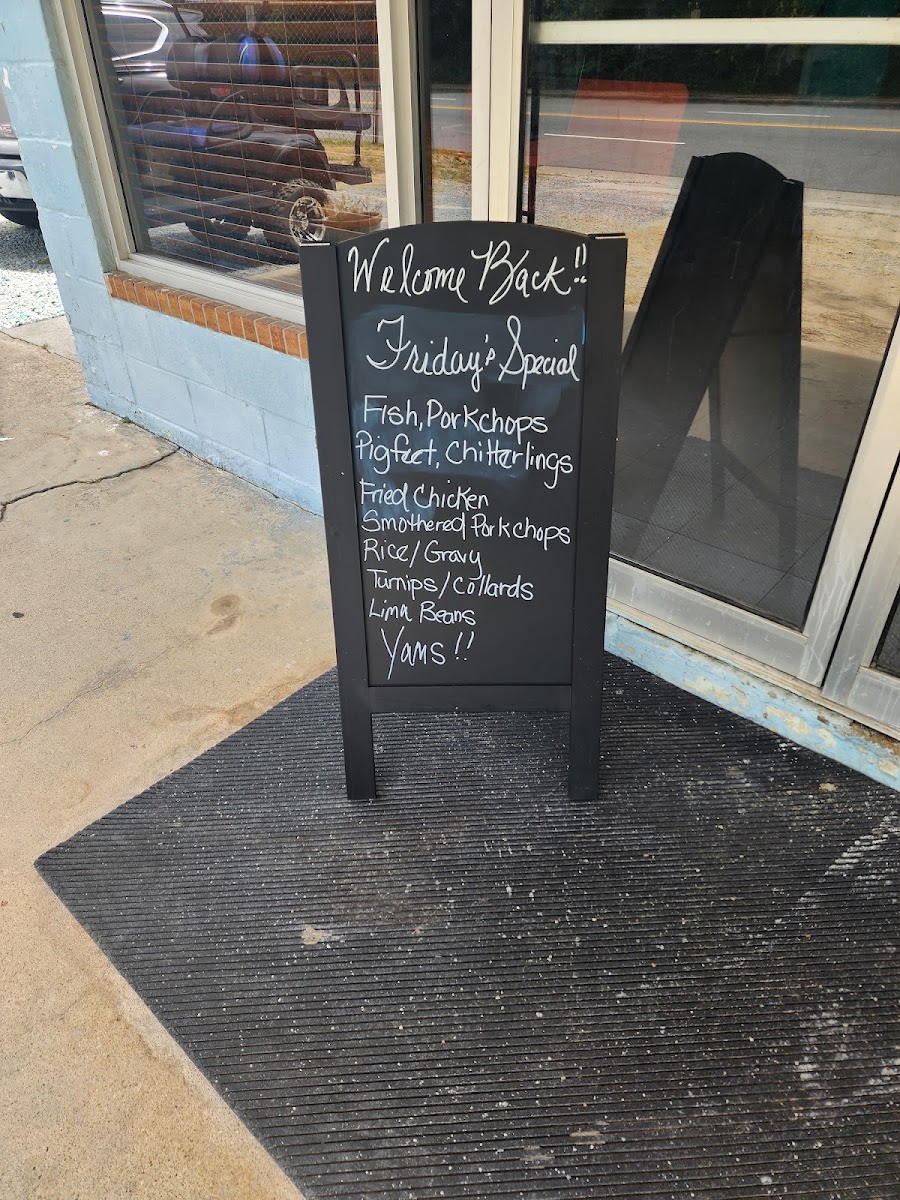 Welcome Back!!
Friday's Special
Fish, Porkchops
Pigfeet, Chitterlings
Fried Chicken
Smothered Porkchops
Rice/Gravy
Turnips/Collards
Lima Beans
Yams!!